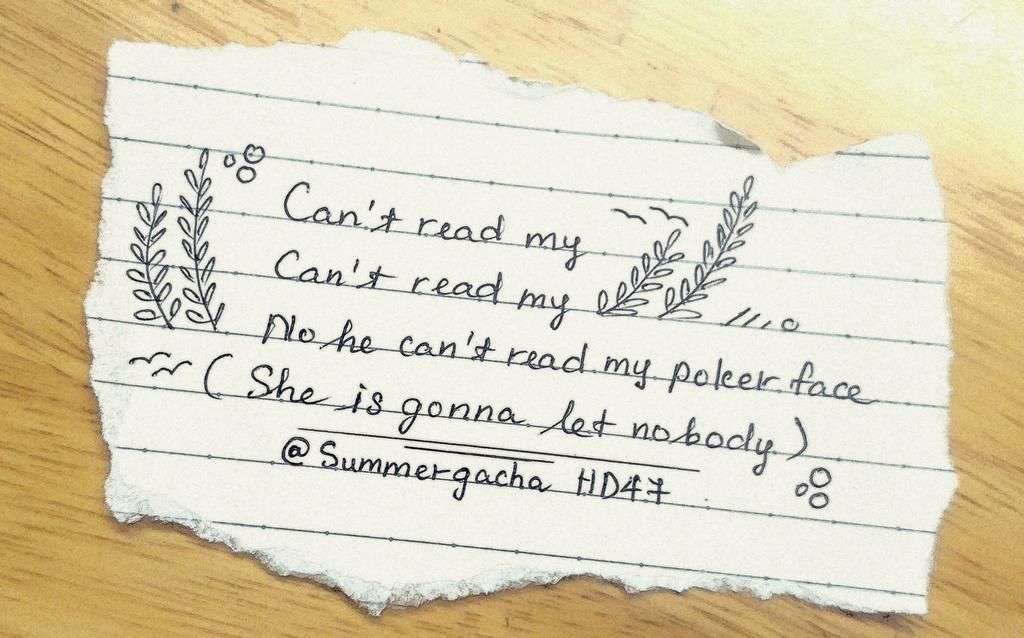 Can't read my
Can't read my
No he can't read my poker face
(She is gonna let nobody)
@Summergacha HD47